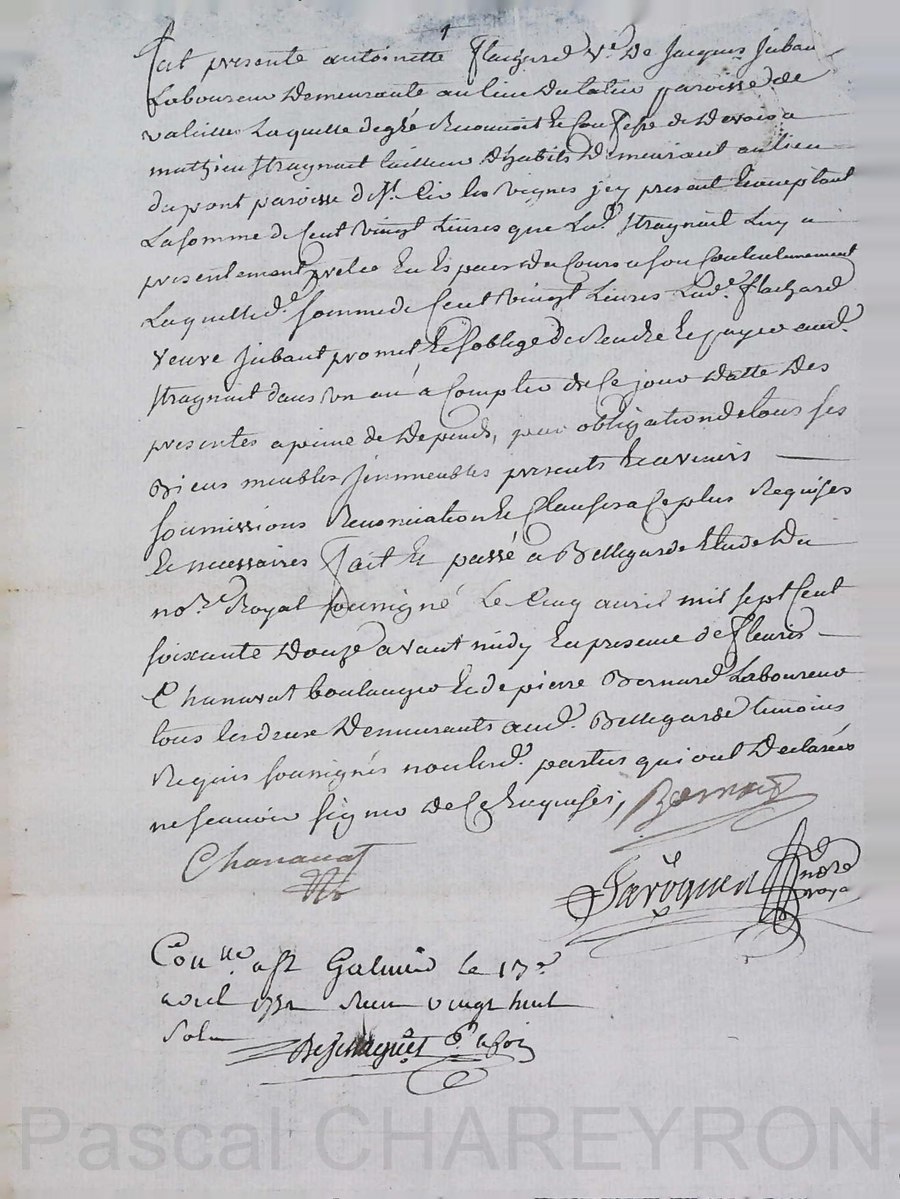 fut presente antoinette flachard v.e De Jacques Jubau
Laboureur Demeurante au lieu paroisse de
valeille Laquelle de gré Reconnoit et Confesse de Devoir a
mathieu stragnait tailleur D'habits Demeurant au lieu
du pont paroisse de St. Cir les vignes icy present acceptant
La somme de Cent vingt Livres que Led. stragnait Luy a
presentement prêtée En Espaces De Cours a son Contentement
Laquelle d.e somme de Cent vingt Livres Lad.e flachard
veuve Jubaut promet Et s'oblige De Rendre Et payer aud.
stragnait dans un an a Compter de Ce jour Datte Des
presentes a peine de Depends, par obligation de tous ses
Biens meubles immeubles presents Et avenirs
soumissions Renonciation Et Clauses a Ce plus Requises
Et necessaires fait Et passé a Bellegarde Etude Du
no.re Royal soussigné Le Cinq avril mil sept Cent
soixante Douze avant midy En presence de fleuris
Chanavat boulanger Et de pierre Bernard Laboureur
tous les deux Demeurants aud. Bellegarde temoins
Requis soussignés non lesd. parties qui ont Declarées
ne scavoir signer de Ce Enquises,
Bernard
Chanavat
no.re
roya
Con.lle a st Galmier le 17.e
avril 1772 Recu vingt huit
Sols
Pascal CHAREYRON